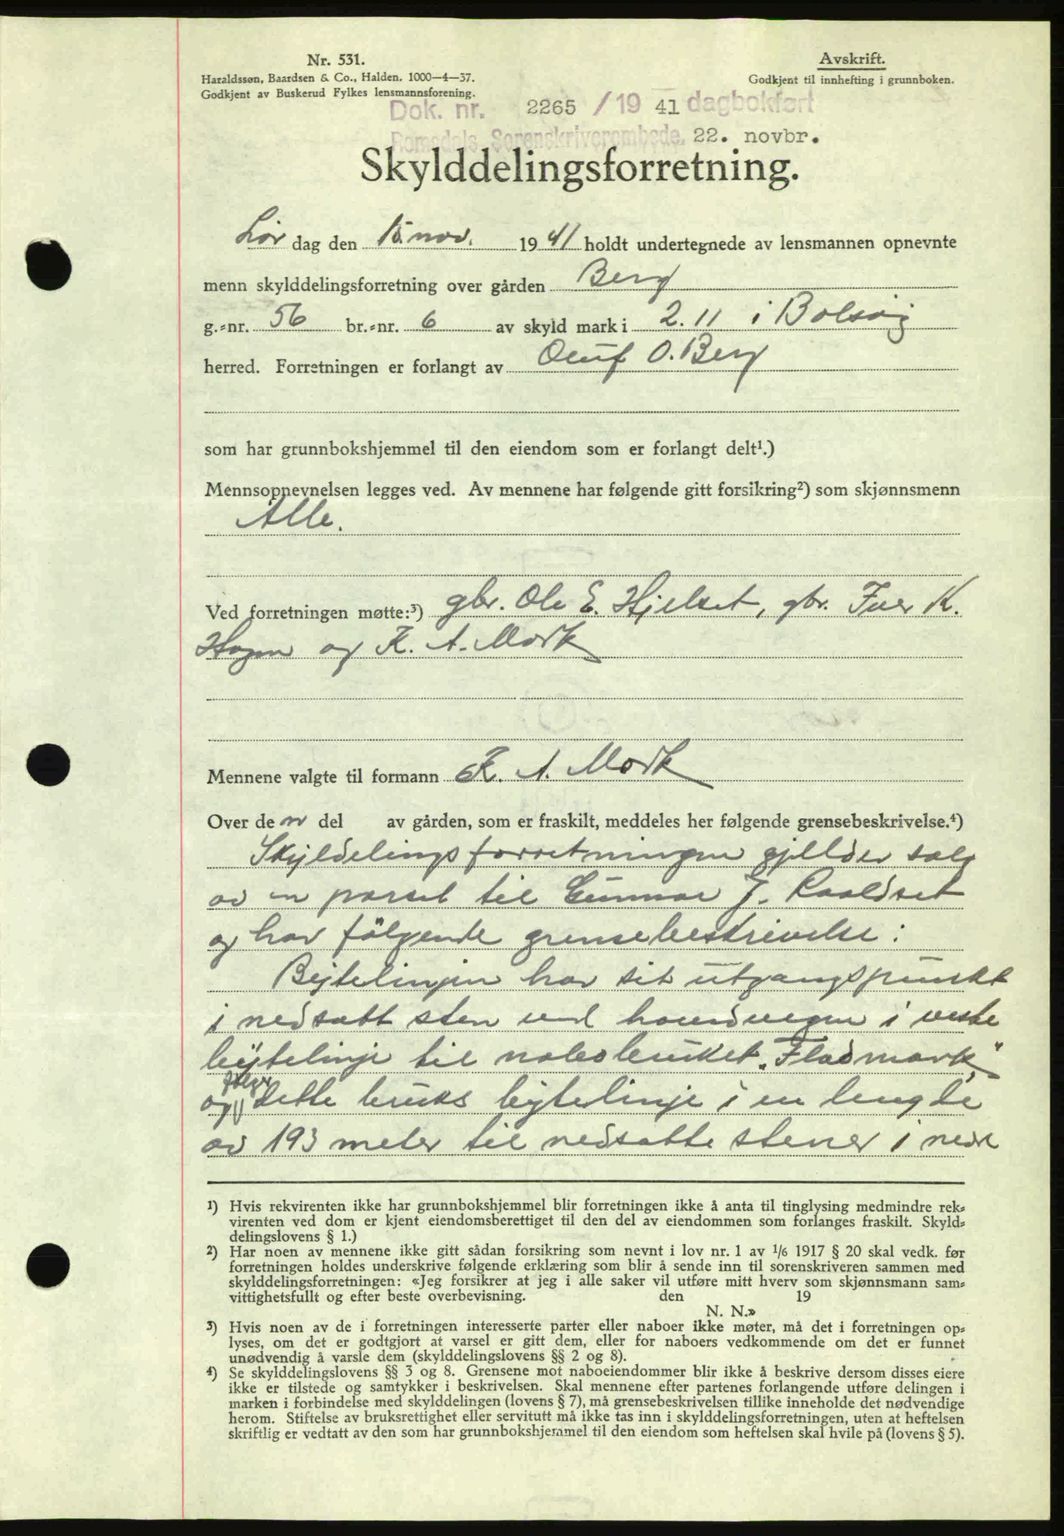 Nr. 531.
Haraldssøn, Baardsen & Co., Halden. 1000—4—37.
Godkjent av Buskerud Fylkes lensmannsforening.
Avskrift.
Godkjent til innhefting i grunnboken.
Dok. nr. 2265 / 19 41 dagbokført
Romsdals Sorenskriverembede. 22. novbr.
Skylddelingsforretning.
Lør dag den 15 nov. 19 41 holdt undertegnede av lensmannen opnevnte
menn skylddelingsforretning over gården Berg
g.-nr. 56 br.-nr. 6 av skyld mark i 2.11 i Bolsøy
herred. Forretningen er forlangt av Oluf O. Berg
som har grunnbokshjemmel til den eiendom som er forlangt delt¹.)
Mennsopnevnelsen legges ved. Av mennene har følgende gitt forsikring²) som skjønnsmenn
Alle.
Ved forretningen møtte:³) gbr. Ole E. Hjelset, gbr. Iver K.
Hagen og K. A. Mork
Mennene valgte til formann K. A. Mork
Over de n del av gården, som er fraskilt, meddeles her følgende grensebeskrivelse.⁴)
Skyldelingsforretningen gjelder salg
av en parsel til Gunnar J. Raaldset
og har følgende grensebeskrivelse:
Bytelinjen har sit utgangspunkt
i nedsatt sten ved hovedvegen i vestre
bytelinje til nabobruket „Fladmark"
og følger dette bruks bytelinje i en lengde
av 193 meter til nedsatte stener i nedre
¹) Hvis rekvirenten ikke har grunnbokshjemmel blir forretningen ikke å anta til tinglysing medmindre rek-
virenten ved dom er kjent eiendomsberettiget til den del av eiendommen som forlanges fraskilt. Skyld-
delingslovens § 1.)
²) Har noen av mennene ikke gitt sådan forsikring som nevnt i lov nr. 1 av 1/6 1917 § 20 skal vedk. før
forretningen holdes underskrive følgende erklæring som blir å sende inn til sorenskriveren sammen med
skylddelingsforretningen: «Jeg forsikrer at jeg i alle saker vil utføre mitt hverv som skjønnsmann sam-
vittighetsfullt og efter beste overbevisning. den 19
N. N.»
³) Hvis noen av de i forretningen interesserte parter eller naboer ikke møter, må det i forretningen op-
lyses, om det er godtgjort at varsel er gitt dem, eller for naboers vedkommende om det er funnet
unødvendig å varsle dem (skylddelingslovens §§ 2 og 8).
⁴) Se skylddelingslovens §§ 3 og 8. Grensene mot naboeiendommer blir ikke å beskrive dersom disses eiere
ikke er tilstede og samtykker i beskrivelsen. Skal mennene efter partenes forlangende utføre delingen i
marken i forbindelse med skylddelingen (lovens § 7), må grensebeskrivelsen tillike inneholde det nødvendige
herom. Stiftelse av bruksrettighet eller servitutt må ikke tas inn i skylddelingsforretningen, uten at heftelsen
skriftlig er vedtatt av den som har grunnbokshjemmel til den eiendom som heftelsen skal hvile på (lovens § 5).